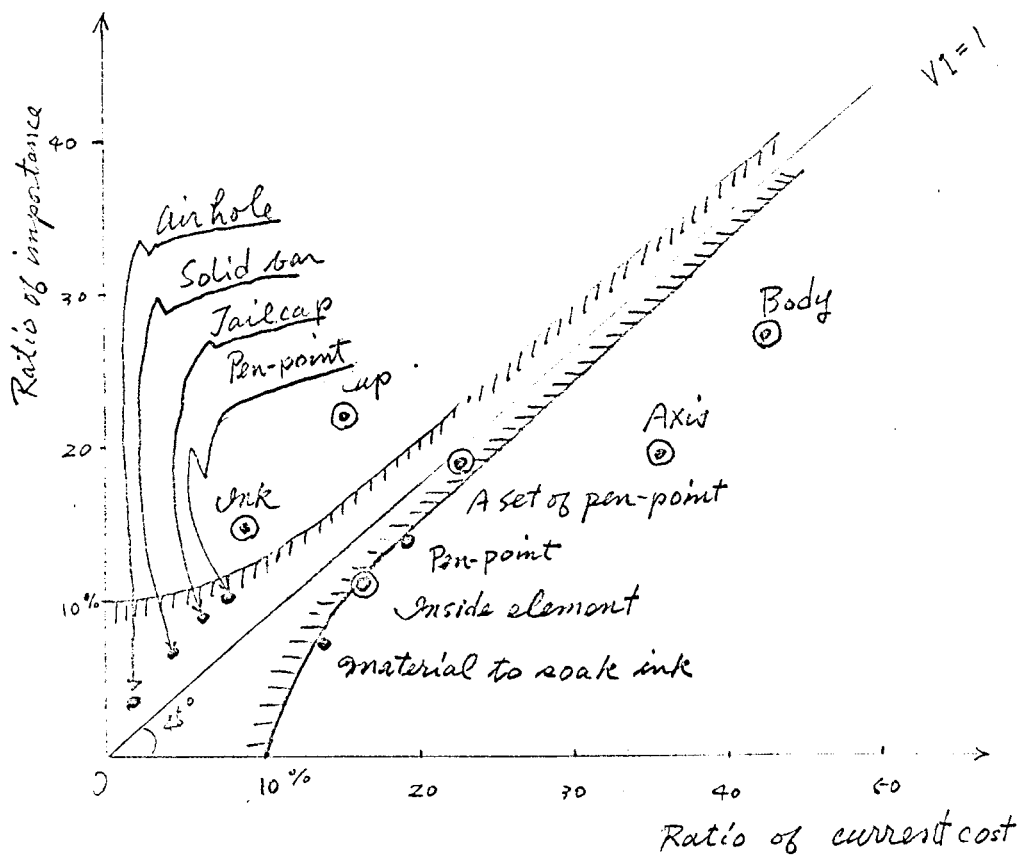 VI = 1
Ratio of importance
40
30
20
10%
Air hole
Solid bar
Tailcap
Pen-point
up
Ink
Body
Axis
A set of pen-point
Pen-point
Inside element
material to soak ink
45°
0
10%
20
30
40
50
Ratio of current cost